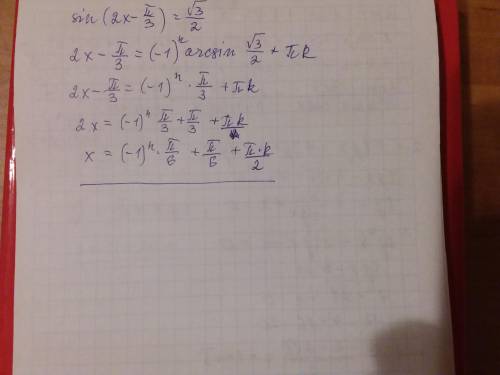 sin(2x - π/3) = √3/2
2x - π/3 = (-1)^n arcsin √3/2 + πk
2x - π/3 = (-1)^n · π/3 + πk
2x = (-1)^n π/3 + π/3 + πk
x = (-1)^n · π/6 + π/6 + π·k/2